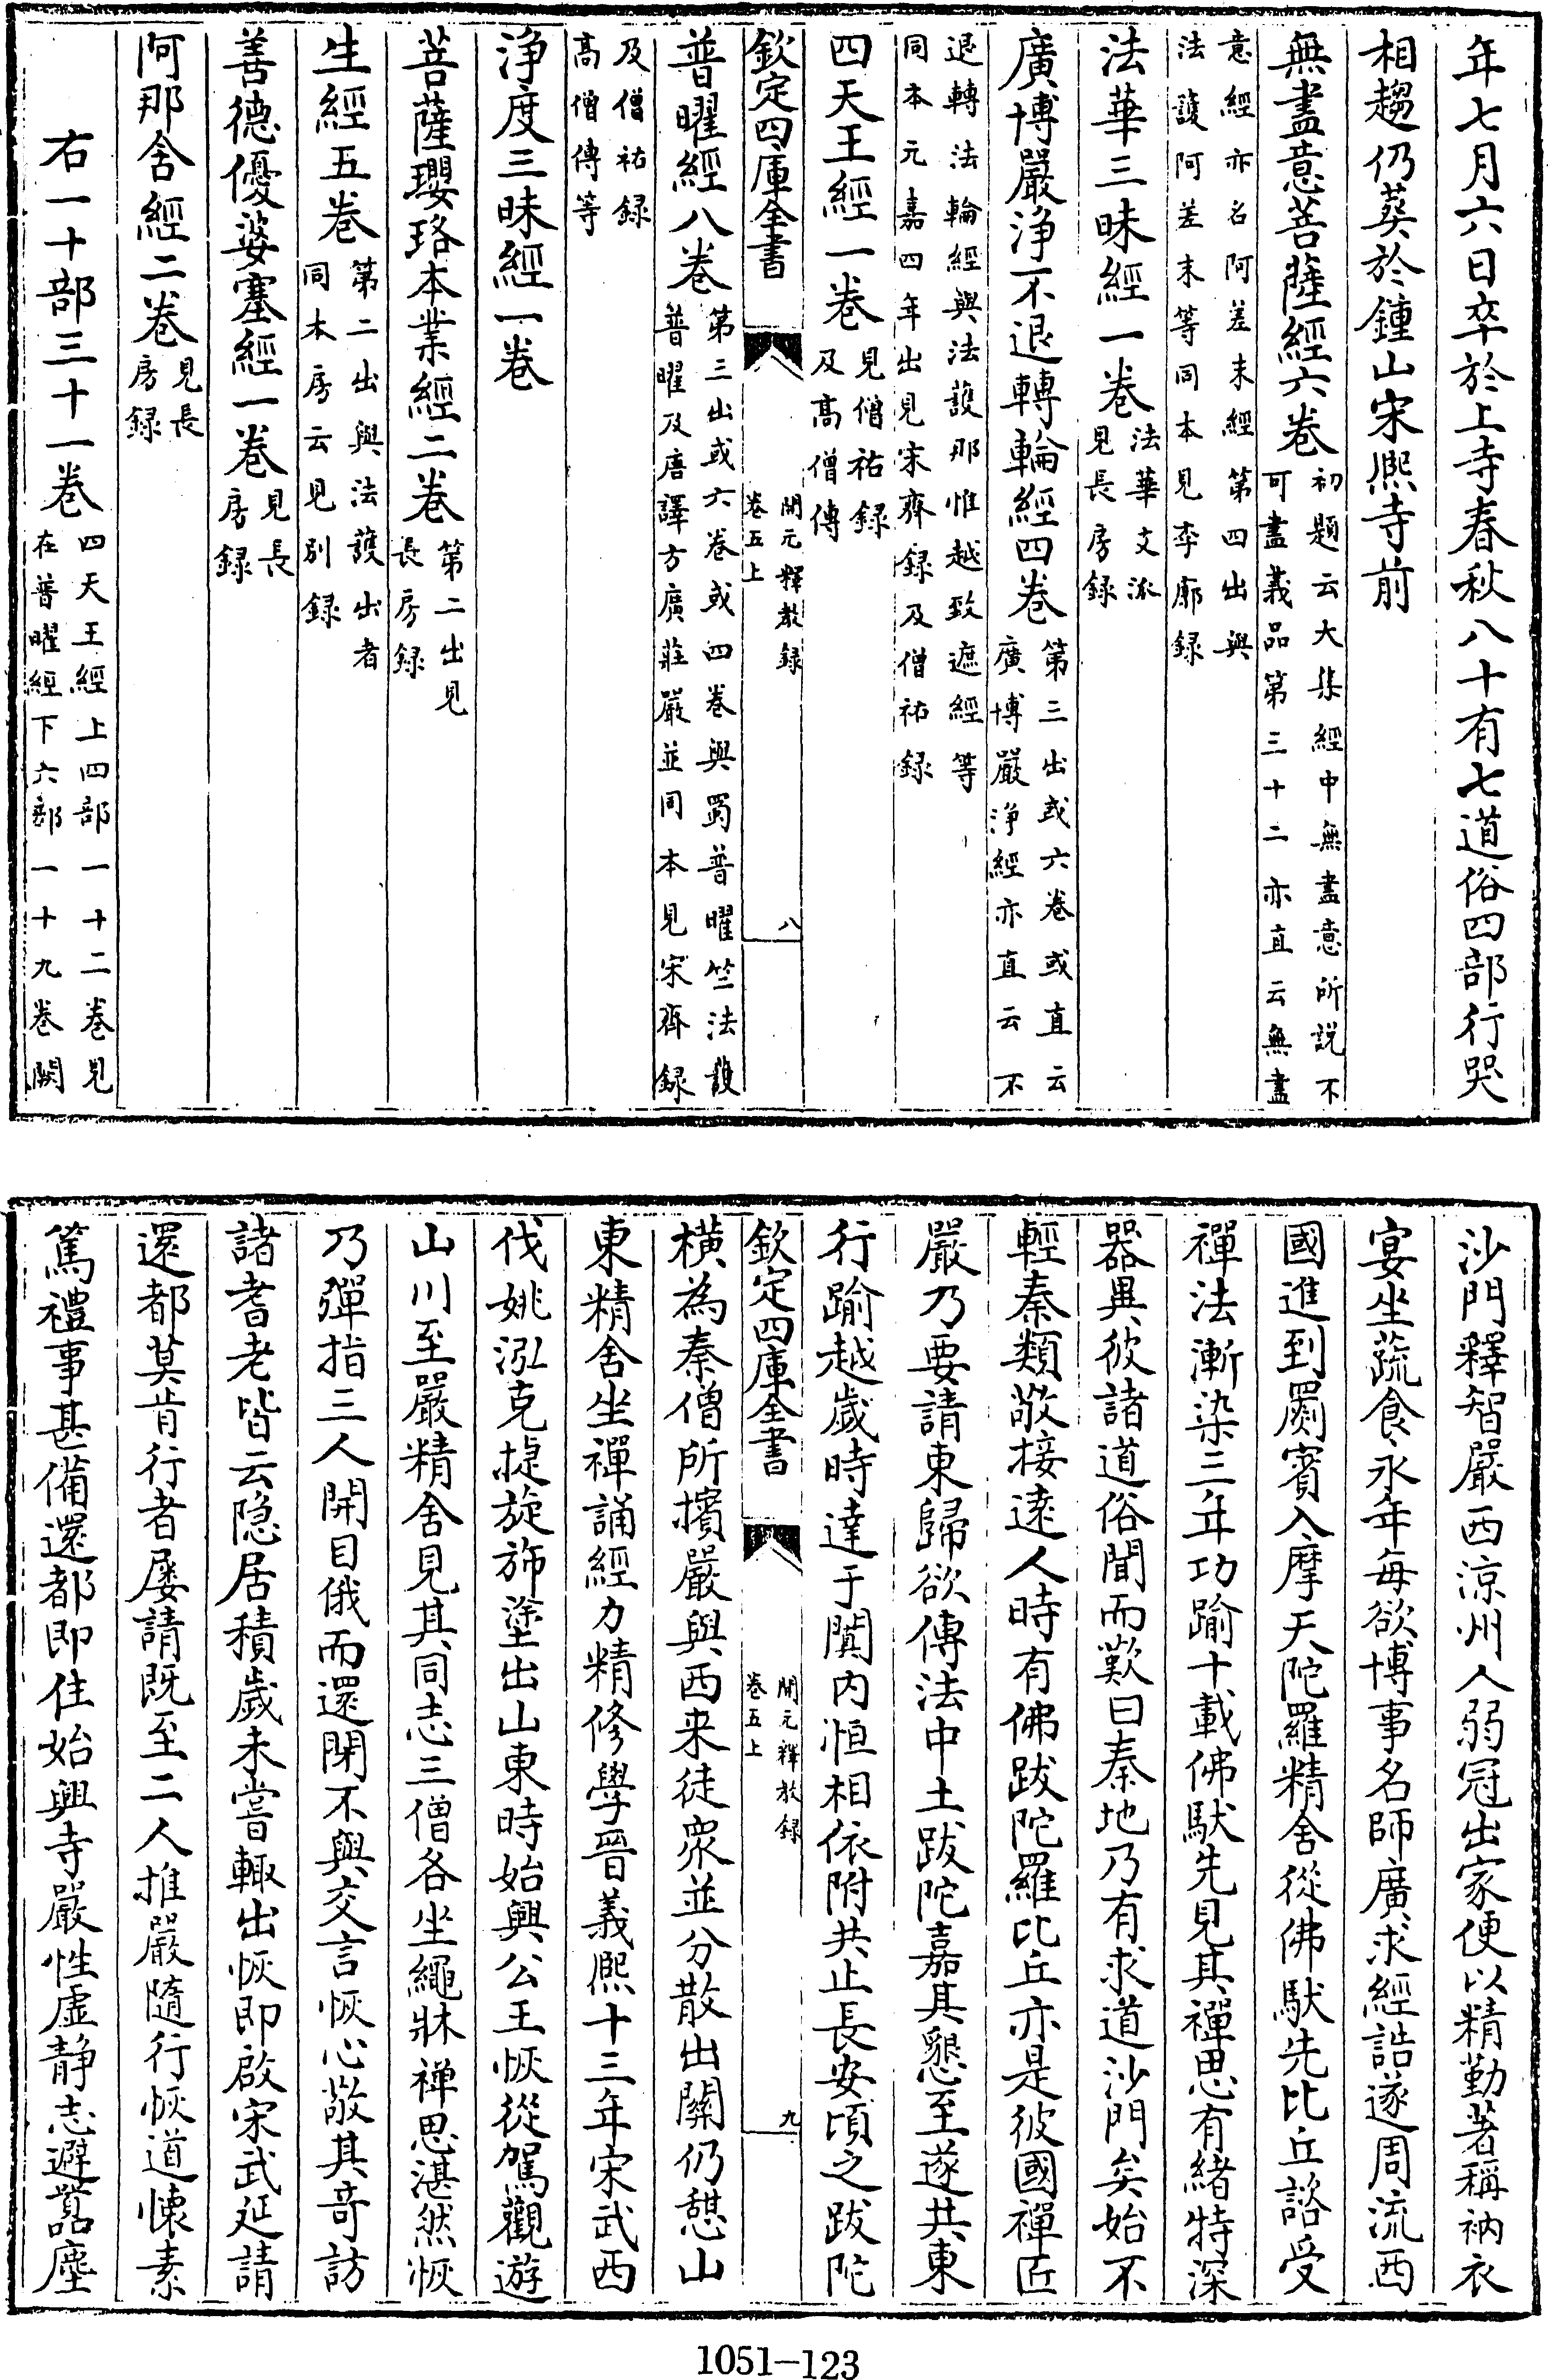 年七月六日卒於上寺春秋八十有七道俗四部行哭
相趨仍葬於鍾山宋熙寺前
無盡意菩薩經六巻初題云大集經中無盡意所説不
可盡義品第三十二亦直云無盡
意經亦名阿差末經第四出與
法護阿差末等同本見李廓録
法華三昧經一巻法華支派
見長房録
廣博嚴淨不退轉輪經四巻第三出或六巻或直云
廣博嚴淨經亦直云不
退轉法輪經與法護那惟越致遮經等
同本元嘉四年出見宋齊録及僧祐録
四天王經一巻見僧祐録
及髙僧傳
欽定四庫全書
開元釋教録
巻五上
八
普曜經八巻第三出或六巻或四巻與蜀普曜竺法護
普曜及唐譯方廣莊嚴並同本見宋齊録
及僧祐録
髙僧傳等
淨度三昧經一巻
菩薩瓔珞本業經二巻第二出見
長房録
生經五巻第二出與法護出者
同本房云見別録
善德優婆塞經一巻見長
房録
阿那含經二巻見長
房録
右一十部三十一巻四天王經上四部一十二巻見
在普曜經下六部一十九巻闕
沙門釋智嚴西涼州人弱冠出家便以精勤著稱衲衣
宴坐蔬食永年每欲博事名師廣求經誥遂周流西
國進到罽賓入摩天陀羅精舍從佛馱先比丘諮受
禪法漸染三年功踰十載佛馱先見其禪思有緒特深
器異彼諸道俗聞而歎曰秦地乃有求道沙門矣始不
輕秦類敬接逺人時有佛跋陀羅比丘亦是彼國禪匠
嚴乃要請東歸欲傳法中土跋陀嘉其懇至遂共東
行踰越歲時達于闐内恒相依附共止長安頃之跋陀
欽定四庫全書
開元釋教録
巻五上
九
橫為秦僧所擯嚴與西来徒衆並分散出關仍憇山
東精舍坐禪誦經力精修學晉義熙十三年宋武西
伐姚泓克㨗旋斾塗出山東時始興公王恢從駕觀遊
山川至嚴精舍見其同志三僧各坐繩牀禅思湛然恢
乃彈指三人開目俄而還閉不與交言恢心敬其竒訪
諸耆老皆云隐居積歲未嘗輙出恢即啟宋武延請
還都莫肯行者屡請既至二人推嚴隨行恢道懐素
篤禮事甚備還都即住始興寺嚴性虚静志避囂塵
1051-123